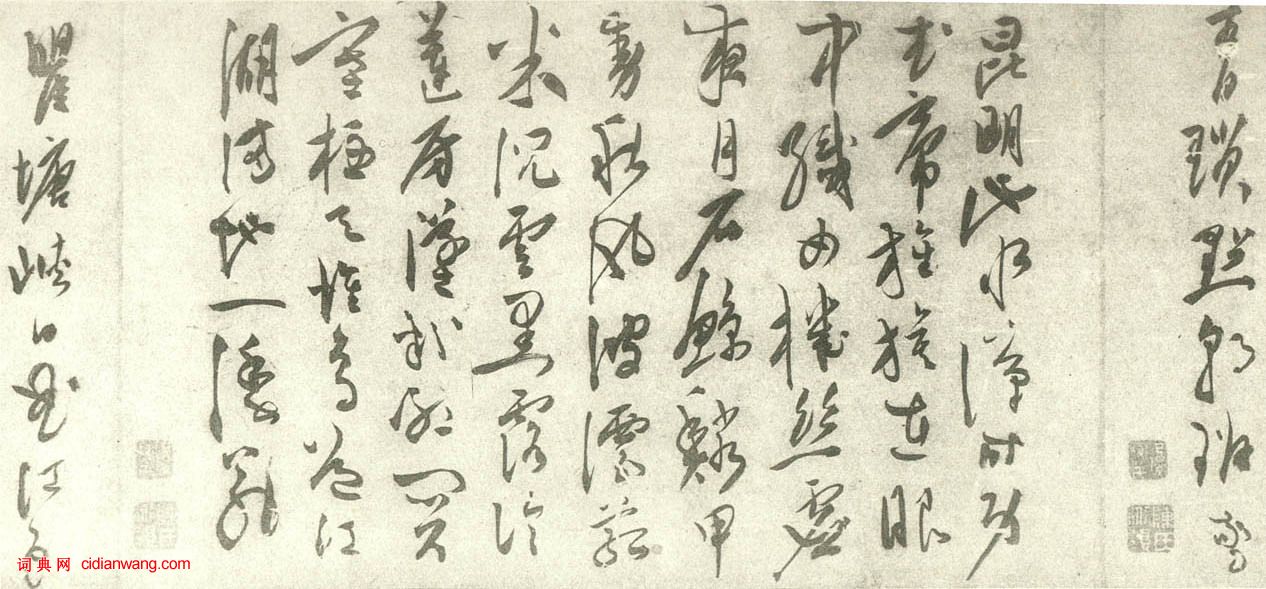 青瑣點朝班
昆明池水漢時功
武帝旌旗在眼
中織女機絲虛
夜月石鯨鱗甲
動秋風波漂菰
米沉雲黑露冷
蓮房墜粉紅關
塞極天惟鳥道江
湖滿地一漁翁
瞿塘峽口曲江頭
词典网 cidianwang.com